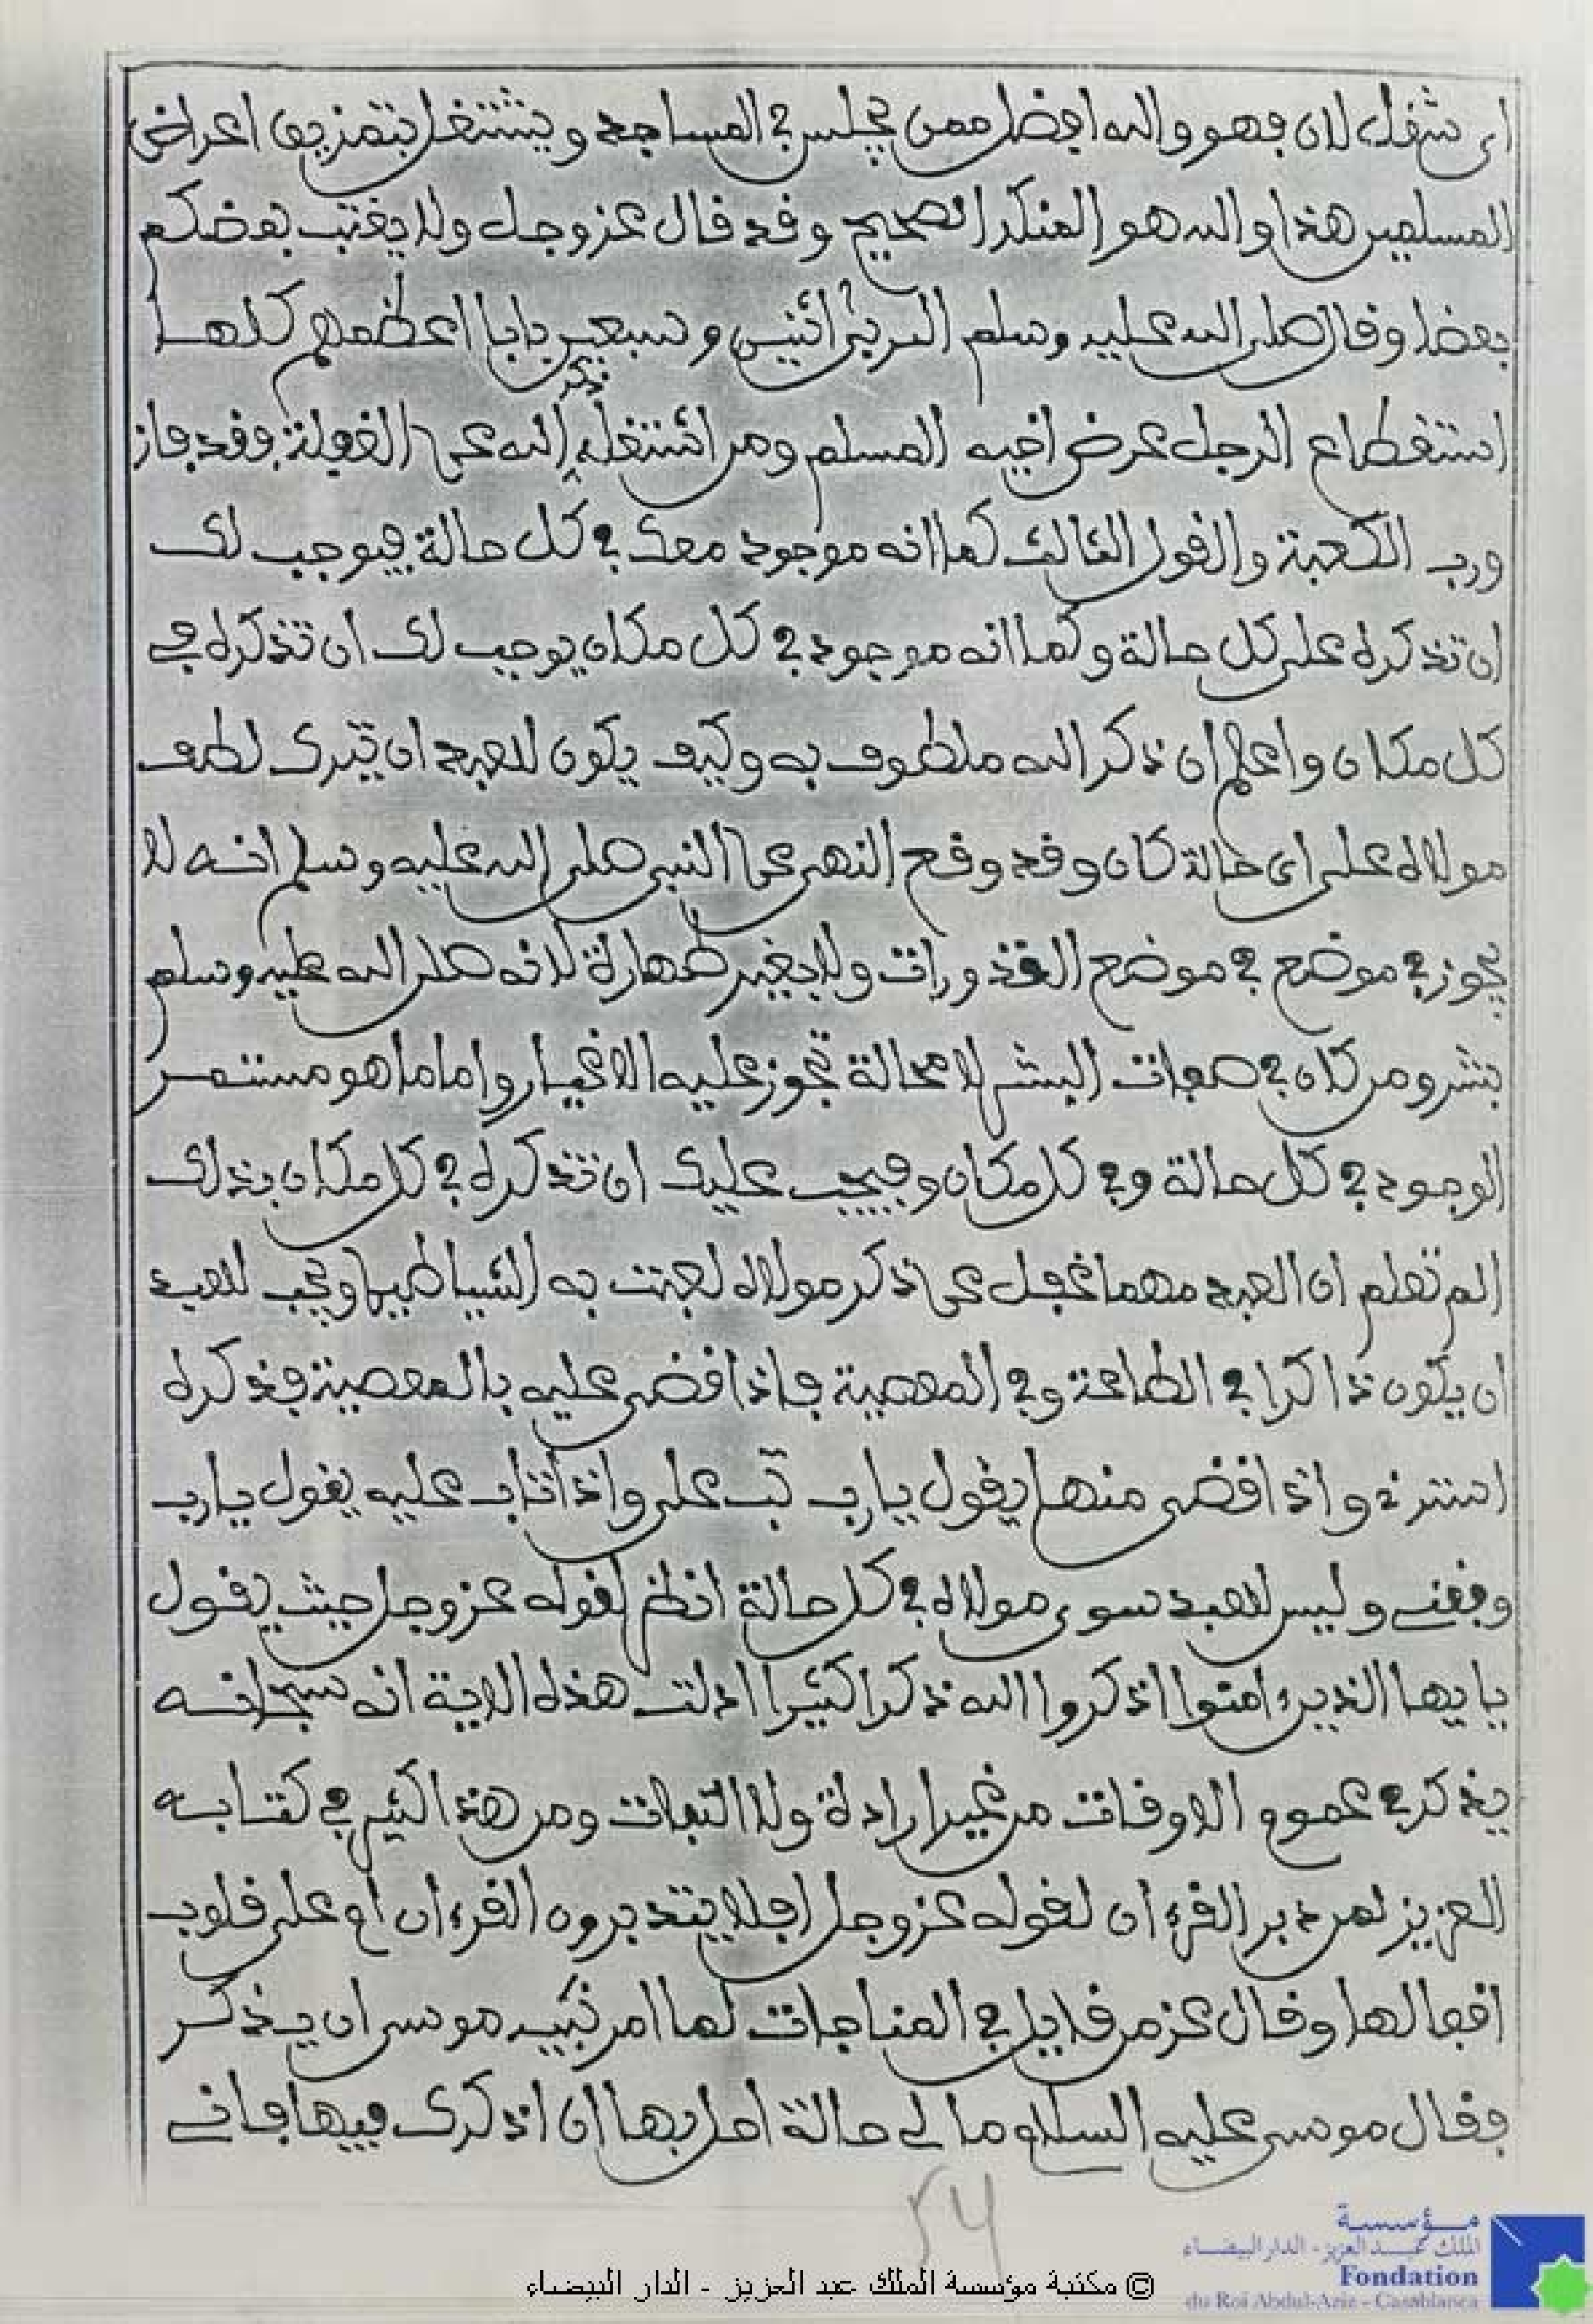 اى شغل كان فهو والله افضل ممن يجلس في المساجد ويشتغل بتمزيق اعراض
المسلمين هذا والله هو المنكر الصحيح وقد قال عز وجل ولا يغتب بعضكم
بعضا وقال صلى الله عليه وسلم الربى اثنين وسبعين بابا اعظمهم كلها
استقطاع الرجل عرض اخيه المسلم ومن اشتغل بذكر الله عن الغفلة فقد فاز
ورب الكعبة والقول الثالث كما انه موجود معك في كل حالة فيوجب لك
ان تذكره على كل حالة وكما انه موجود في كل مكان يوجب لك ان تذكره في
كل مكان واعلم ان ذكر الله ملطوف به وكيف يكون للعبد ان يترك لطف
مولاه على اى حالة كان وقد وقع النهى عن النبي صلى الله عليه وسلم انه لا
يجوز في موضع في موضع القذورات ولا بغير طهارة لانه صلى الله عليه وسلم
بشر ومن كان في صفات البشر لا محالة تجوز عليه الاغيار واما ما هو مستمر
الوجود في كل حالة وفي كل مكان وفيجب عليك ان تذكره في كل مكان بذلك
الم تعلم ان العبد مهما غفل عن ذكر مولاه لعبت به الشياطين ويجب للعبد
ان يكون ذاكرا في الطاعة وفي المعصية فاذا قضى عليه بالمعصية فذكره
استرني واذا قضى منها يقول يا رب تب على واذا تاب عليه يقول يا رب
وفقني وليس للعبد سوى مولاه في كل حالة انظر لقوله عز وجل حيث يقول
يا يها الذين ءامنوا اذكروا الله ذكرا كثيرا ادلت هذه الاية انه سبحانه
يذكر في عموم الاوقات من غير ارادة ولا التفات ومن هذا كثير في كتابه
العزيز لمن دبر القرءان لقوله عز وجل افلا يتدبرون القرءان ام على قلوب
اقفالها وقال عز من قايل في المناجات لما امر نبيه موسى ان يذكر
فقال موسى عليه السلام ما لي حالة امل بها ان اذكرك فيها فاني
٢٤
© مكتبة مؤسسة الملك عبد العزيز - الدار البيضاء
مؤسسة
الملك عبد العزيز - الدار البيضاء
Fondation
du Roi Abdul-Aziz - Casablanca